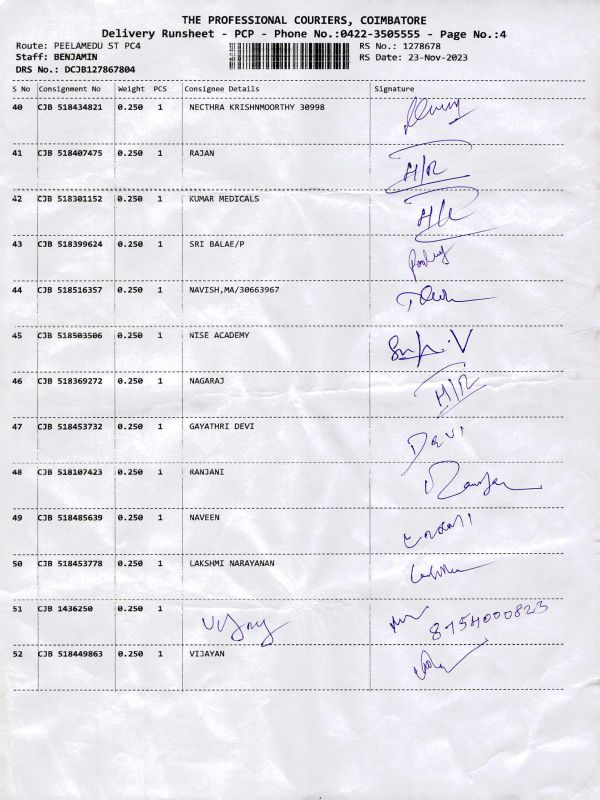 THE PROFESSIONAL COURIERS, COIMBATORE
Delivery Runsheet - PCP - Phone No.:0422-3505555 - Page No.:4
Route: PEELAMEDU ST PC4 RS No.: 1278678
Staff: BENJAMIN RS Date: 23-Nov-2023
DRS No.: DCJB127867804
S No Consignment No Weight PCS Consignee Details Signature
40 CJB 518434821 0.250 1 NECTHRA KRISHNMOORTHY 30998
41 CJB 518407475 0.250 1 RAJAN H/R
42 CJB 518301152 0.250 1 KUMAR MEDICALS H/R
43 CJB 518399624 0.250 1 SRI BALAE/P
44 CJB 518516357 0.250 1 NAVISH,MA/30663967
45 CJB 518503506 0.250 1 NISE ACADEMY
46 CJB 518369272 0.250 1 NAGARAJ H/R
47 CJB 518453732 0.250 1 GAYATHRI DEVI DEVI
48 CJB 518107423 0.250 1 RANJANI
49 CJB 518485639 0.250 1 NAVEEN
50 CJB 518453778 0.250 1 LAKSHMI NARAYANAN
51 CJB 1436250 0.250 1 Vijay 8754000823
52 CJB 518449863 0.250 1 VIJAYAN